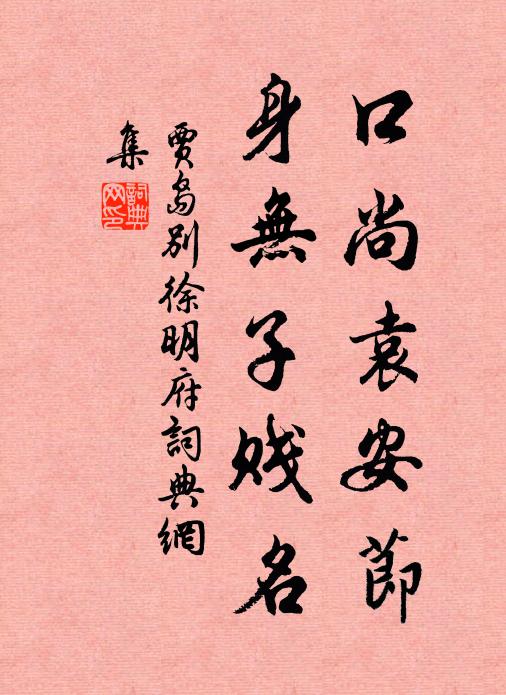 口尚袁安節
身無子賤名
賈島別徐明府詞典網
集
詞典网印